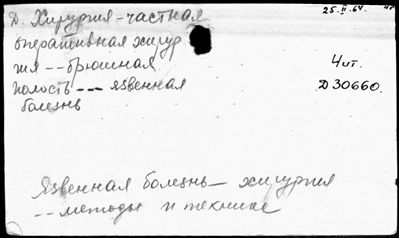 Д. Хирургия-частная
25.II.64.
оперативная хирур
гия -- брюшная
Чит.
полость --- язвенная
Д30660.
болезнь
Язвенная болезнь - хирургия
-- методы и техника